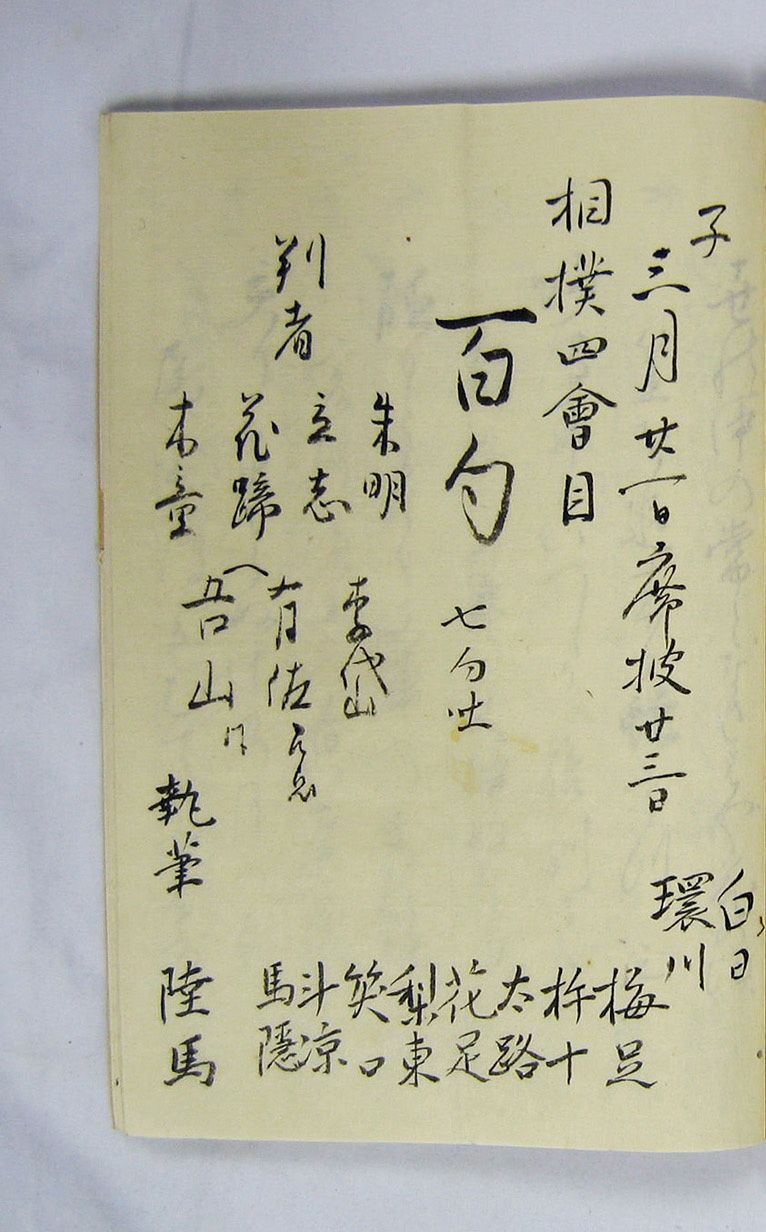 子
三月廿一日席披廿三日
相撲四會目
百句
七句吐
判者
朱明
立志
花蹄
木童
李岱
有佐
吾山
執筆
白日
環川
梅足
杵十
太路
花足
梨東
笑口
斗凉
馬隱
陸馬